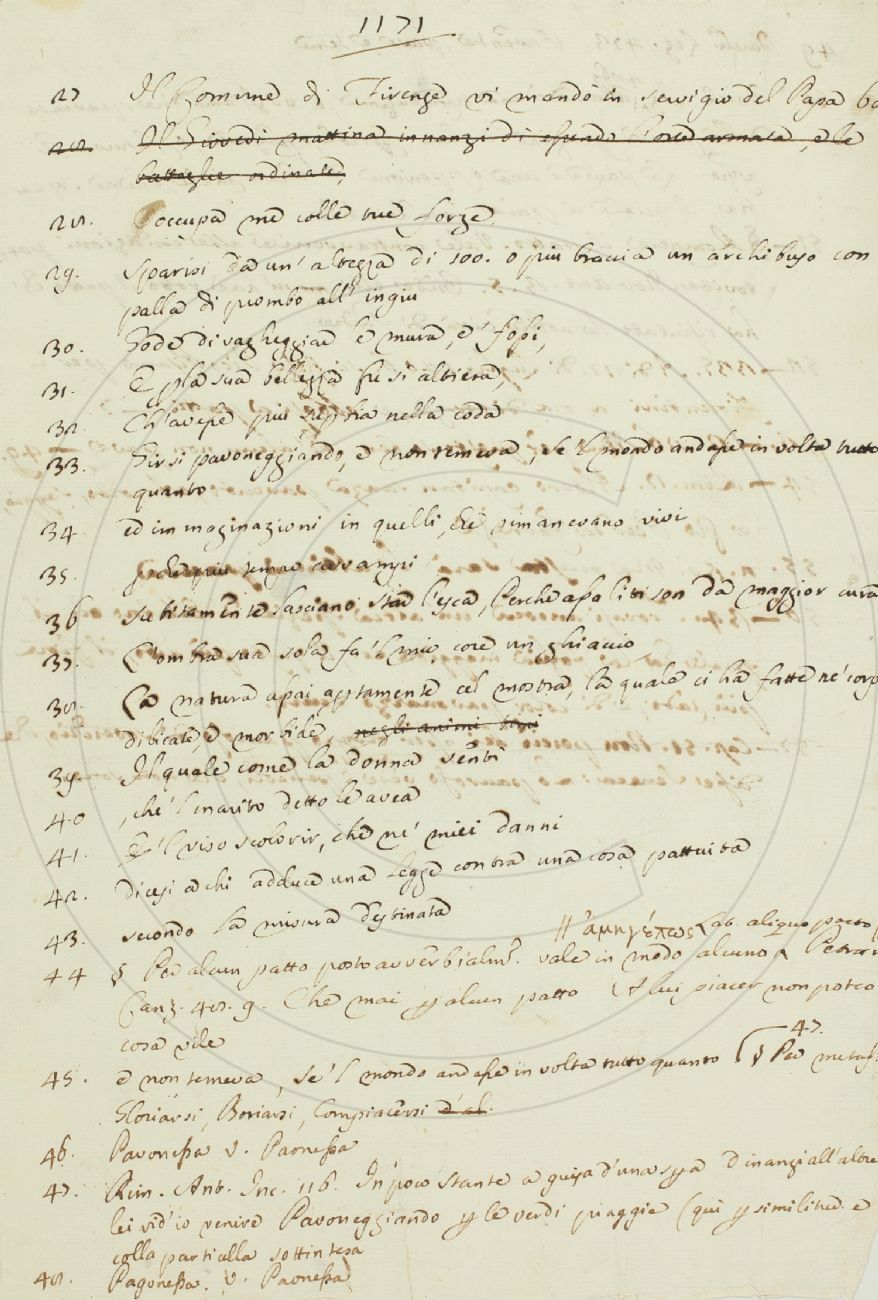 1171
27 Il Comune di Firenze vi mandò in servigio del Papa
28. Il Giovedi mattina innanzi di essendo l'oste armata, e le
battaglie ordinate,
28. occupa me colle tue forze
29. sparisi da un'altezza di 100. o più braccia un archibuso con
palla di piombo all'ingiu
30. Gode di vagheggiar le mura, e' fossi,
31. E p la sua bellezza fu si altiera,
32. Ch'avesse più nella coda
33. Girsi pavoneggiando, e non temeva, se 'l mondo andasse in volta tutto
quanto
34 ed immaginazioni in quelli, che rimanevano vivi
35. più tempo avvampi
36 subitamente lasciano star l'esca, Perche assaliti son da maggior cura
37. L'ombra sua sola fa 'l mio core un ghiaccio
38. La natura assai aptamente cel mostra, la quale ci ha fatte ne' corpi
dilicate, e morbide, negli animi
39. Il quale come la donna sentì
40 , che 'l marito detto le avea
41. E 'l viso scolorir, che ne' miei danni
42. Dicesi a chi adduce una legge contra una cosa pattuita
43. secondo la misura destinata
ἁμηγέπως Lat. aliquo pacto
44 § Per alcun patto posto avverbialm. vale in modo alcuno
Canz. 48. 9. Che mai p alcun patto A lui piacer non poteo
cosa vile
45. e non temeva, se 'l mondo andasse in volta tutto quanto 47. § Per
Gloriarsi, Boriarsi, Compiacersi
46. Pavonessa v. Paonessa
47. Rim. Ant. Inc. 116. In poco stante a guisa d'una spera Dinanzi all'altre
lei vid'io venire Pavoneggiando p le verdi piaggie (qui p similitud. e
colla particella sottintesa
48. Pagonessa. v. Paonessa